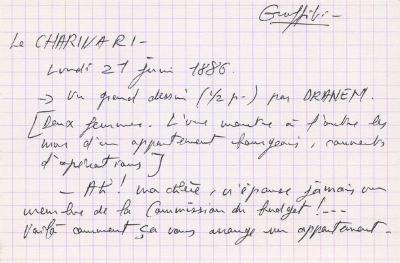 Graffiti -
Le CHARIVARI -
Lundi 21 juin 1886.
-> Un grand dessin (1/2 p.-) par DRANEM.
[Deux femmes. L'une montre à l'autre les
murs d'un appartement bourgeois, couverts
d'opérations]
- Ah ! ma chère, n'épouse jamais un
membre de la Commission du budget !---
Voilà comment ça vous arrange un appartement.-